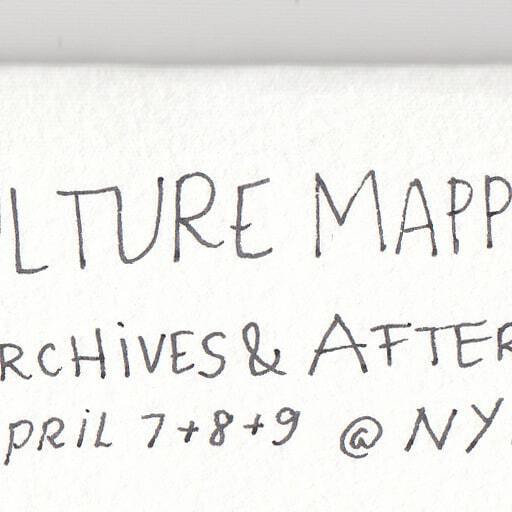 ULTURE MAPP
RCHiVES & AFTER
PRiL 7+8+9 @ NY